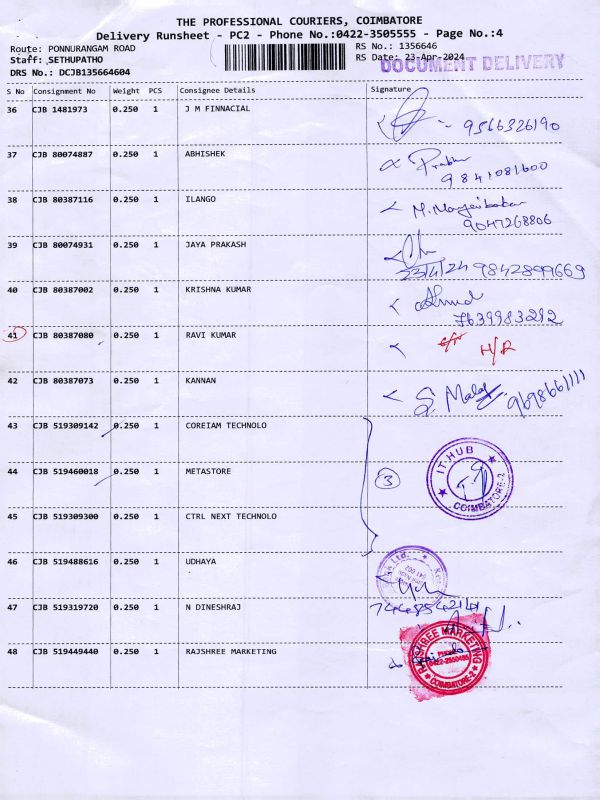 THE PROFESSIONAL COURIERS, COIMBATORE
Delivery Runsheet - PC2 - Phone No.:0422-3505555 - Page No.:4
Route: PONNURANGAM ROAD RS No.: 1356646
Staff: SETHUPATHO RS Date: 23-Apr-2024
DOCUMENT DELIVERY
DRS No.: DCJB135664604
S No Consignment No Weight PCS Consignee Details Signature
36 CJB 1481973 0.250 1 J M FINNACIAL
9566326190
37 CJB 80074887 0.250 1 ABHISHEK
Prabhu
9841081600
38 CJB 80387116 0.250 1 ILANGO
9047268806
39 CJB 80074931 0.250 1 JAYA PRAKASH
23/4/24 9842899669
40 CJB 80387002 0.250 1 KRISHNA KUMAR
7639983212
41 CJB 80387080 0.250 1 RAVI KUMAR
H/R
42 CJB 80387073 0.250 1 KANNAN
9698661111
43 CJB 519309142 0.250 1 COREIAM TECHNOLO
44 CJB 519460018 0.250 1 METASTORE
3
IT HUB
COIMBATORE-2
45 CJB 519309300 0.250 1 CTRL NEXT TECHNOLO
46 CJB 519488616 0.250 1 UDHAYA
47 CJB 519319720 0.250 1 N DINESHRAJ
48 CJB 519449440 0.250 1 RAJSHREE MARKETING
RAJSHREE MARKETING
PHONE
COIMBATORE-2